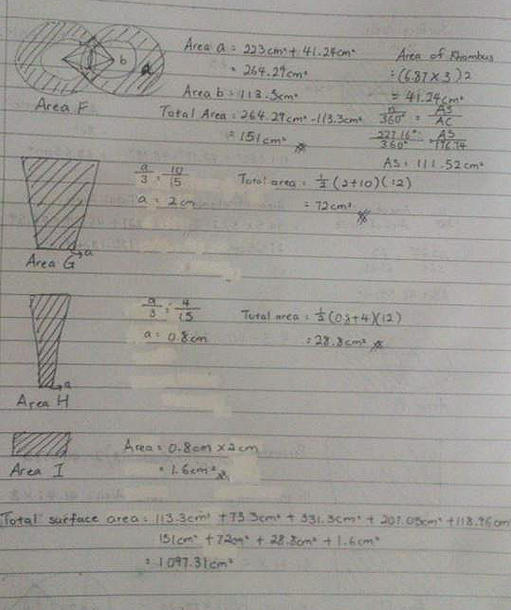 Area a = 223cm² + 41.24cm²
= 264.29cm²
Area b = 113.3cm²
Total Area = 264.29cm² - 113.3cm²
= 151cm²
b
a
Area F
Area of Rhombus
= (6.87 × 3) 2
= 41.24cm²
n/360° = AS/AC
227.16°/360° = AS/176.74
AS = 111.52cm²
a/3 = 10/15
a = 2cm
Total area = ½ (2+10)(12)
= 72cm²
a
Area G
a/3 = 4/15
a = 0.8cm
Total area = ½ (0.8+4)(12)
= 28.8cm²
a
Area H
Area = 0.8cm × 2cm
= 1.6cm²
Area I
Total surface area = 113.3cm² + 73.3cm² + 331.3cm² + 207.05cm² + 118.96cm
151cm² + 72cm² + 28.8cm² + 1.6cm²
= 1097.31cm²